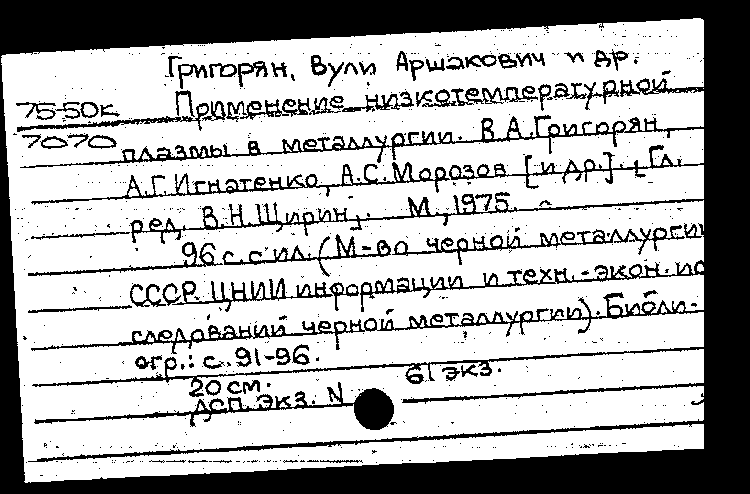 Григорян, Вули Аршакович и др.
75-50к Применение низкотемпературной
7070 плазмы в металлургии. В.А.Григорян,
А.Г.Игнатенко, А.С.Морозов [и др.]. [Гл.
ред. В.Н.Щирин]. М., 1975.
96 с. с ил. (М-во черной металлургии
СССР. ЦНИИ информации и техн.-экон. ис
следований черной металлургии). Библи-
огр.: с. 91-96.
20 см. 61 экз.
ДСП. экз. N